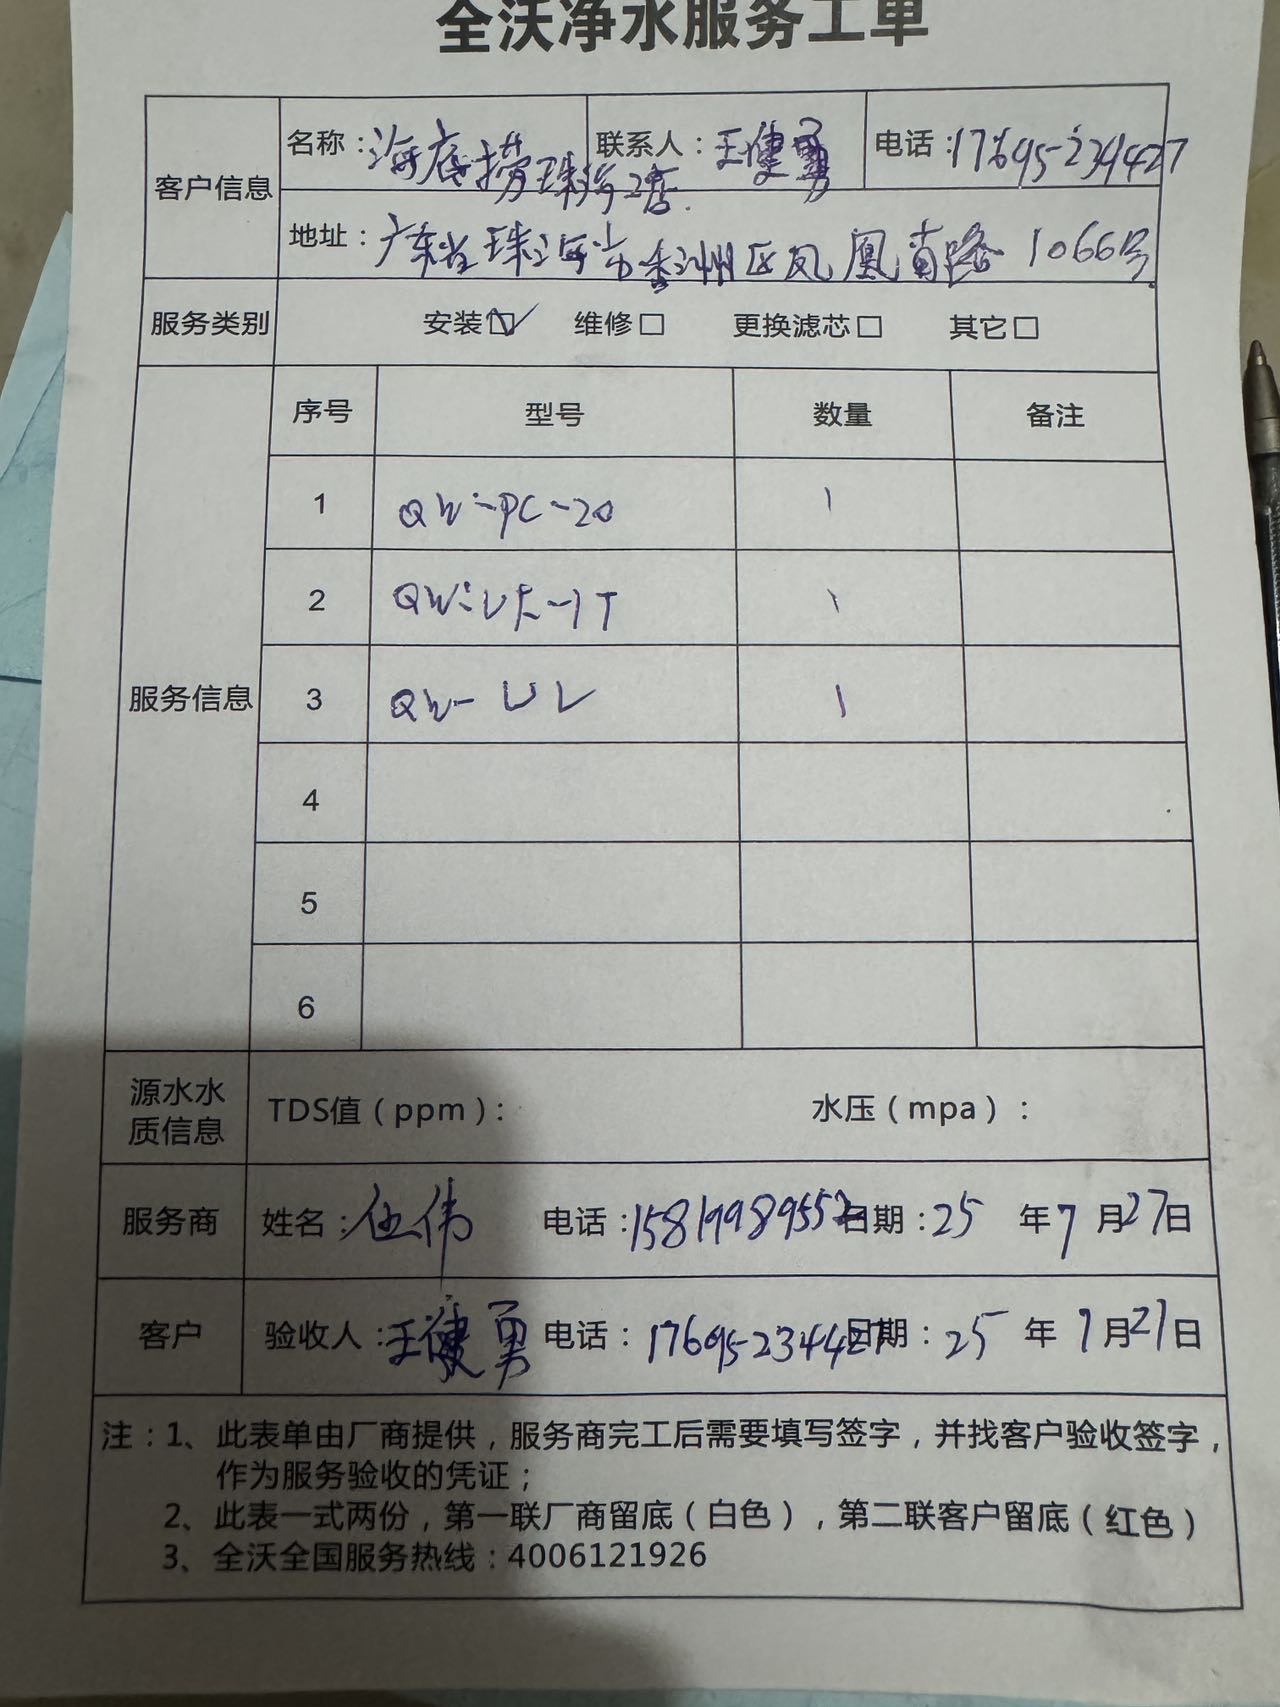 全沃净水服务工单
客户信息
名称：海底捞珠海2店 联系人：王健勇 电话：17695234427
地址：广东省珠海市香洲区凤凰南路1066号
服务类别 安装☑ 维修□ 更换滤芯□ 其它□
服务信息
序号 型号 数量 备注
1 QW-PC-20 1
2 QW-UF-1T 1
3 QW-UV 1
4
5
6
源水水质信息 TDS值（ppm）： 水压（mpa）：
服务商 姓名：伍伟 电话：15819989552 日期：25 年 7 月 27 日
客户 验收人：王健勇 电话：17695234427 日期：25 年 7 月 27 日
注：1、此表单由厂商提供，服务商完工后需要填写签字，并找客户验收签字，
作为服务验收的凭证；
2、此表一式两份，第一联厂商留底（白色），第二联客户留底（红色）
3、全沃全国服务热线：4006121926